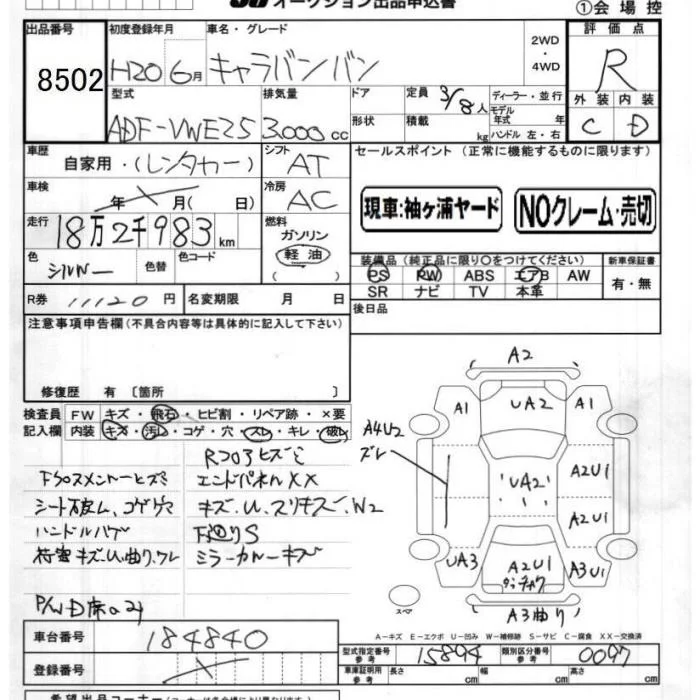 オークション出品申込書
①会場控
出品番号 初度登録年月 車名・グレード 2WD・4WD 評価点
8502 H20 6月 キャラバンバン R
型式 排気量 ドア 定員 3/8人 ディーラー・並行 外装 内装
ADF-VWE25 3.000cc 形状 積載 kg モデル年式 年 ハンドル 左・右 C D
車歴 自家用・(レンタカー) シフト AT セールスポイント (正常に機能するものに限ります)
車検 年 月( 日) 冷房 AC 現車:袖ヶ浦ヤード NOクレーム・売切
走行 18万2千983km 燃料 ガソリン 軽油 ( )
色 シルバー 色替 色コード
装備品(純正品に限り○をつけてください) 新車保証書
PS PW ABS エアB AW 有・無
SR ナビ TV 本革
R券 11120円 名変期限 月 日 後日品
注意事項申告欄(不具合内容等は具体的に記入して下さい)
修復歴 有 〔箇所 〕
検査員 FW キズ・飛石・ヒビ割・リペア跡・×要
記入欄 内装 キズ・汚レ・コゲ・穴・スレ・キレ・破レ
Rコロヒズミ
エンドパネルXX
シート破レ、コゲ穴 キズ、U、スリキズ、W2
下廻りS
荷室キズ、U、曲り、ワレ ミラーカバーキズ
A2
A1 UA2 A1
A4U2
ズレ
A2U1
UA2
A2U1
UA3 A2U1 A3U1
スペア A3曲り
A-キズ E-エクボ U-凹み W-補修跡 S-サビ C-腐食 XX-交換済
車台番号 184840 型式指定番号 参考 15894 類別区分番号 参考 0097
登録番号 車庫証明用 参考 長さ cm 幅 cm 高さ cm
希望出品コーナー